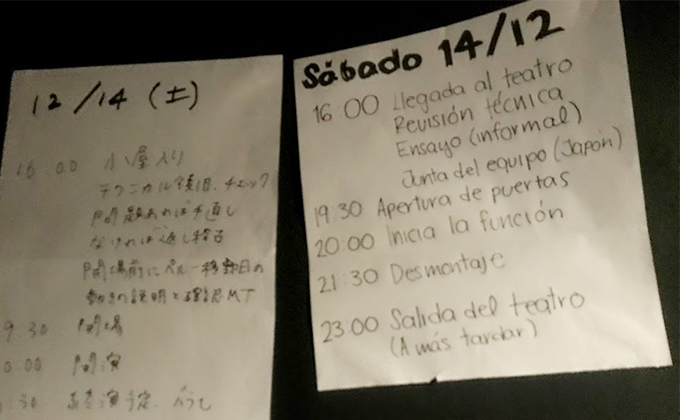 12/14 (土)
16:00 小屋入り
テクニカル復旧、チェック
問題あれば手直し
なければ返し稽古
開場前にペルー移動日の
動きの説明と確認MT
9:30 開場
0:00 開演
:30
Sábado 14/12
16 00 Llegada al teatro
Revisión técnica
Ensayo (informal)
Junta del equipo (Japón)
19:30 Apertura de puertas
20:00 Inicia la función
21:30 Desmontaje
23:00 Salida del teatro
(A más tardar)